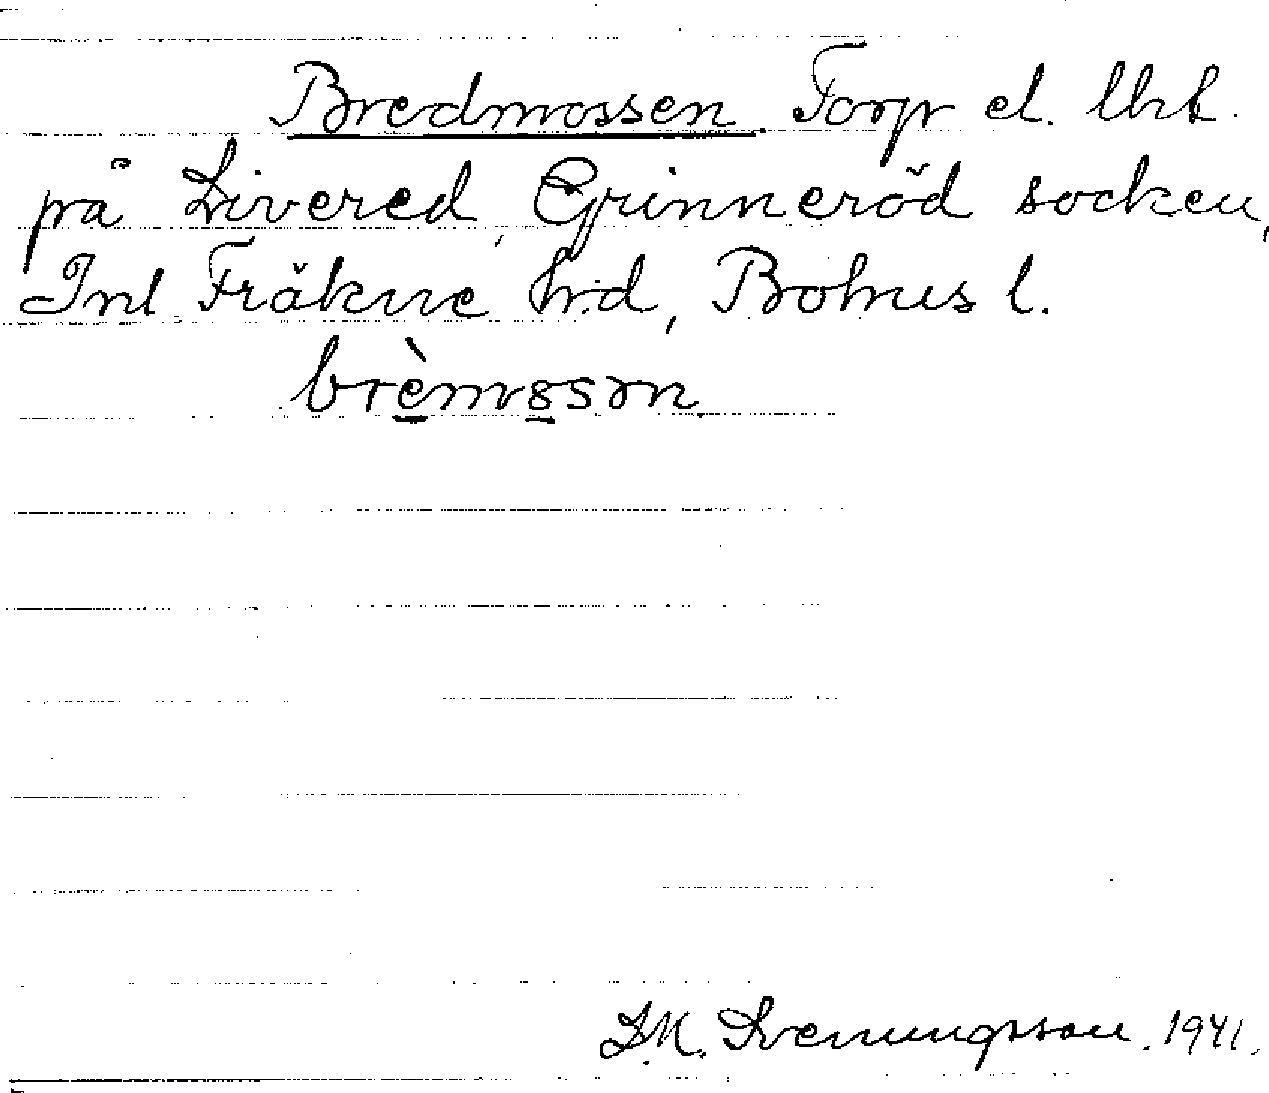 Bredmossen. Torp el. lht.
på Livered, Grinneröd socken,
Inl. Fräkne hrd, Bohus l.
brèmssən
S.M. Svenungsson. 1941.